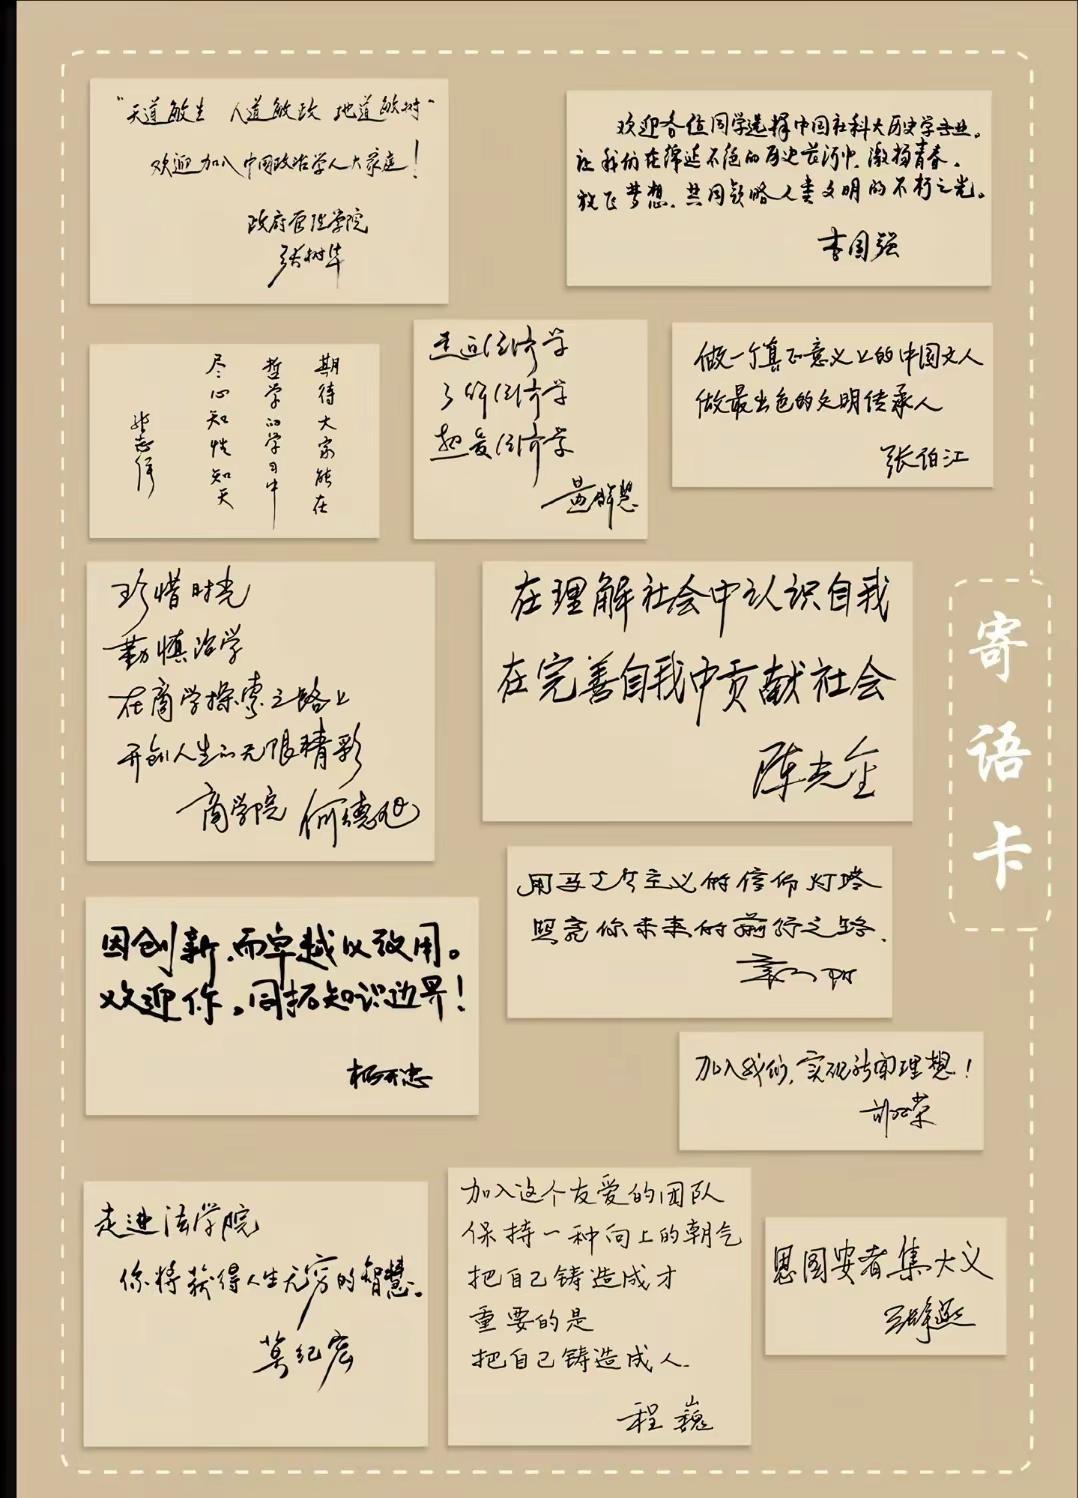 "天道敏生 人道敏政 地道敏树"
欢迎加入中国政治学人大家庭！
政府管理学院
张树华
欢迎各位同学选择中国社科大历史学专业。
让我们在绵延不绝的历史长河中，激扬青春。
放飞梦想，共同领略人类文明的不朽之光。
李国强
期待大家能在
哲学的学习中
尽心知性知天
张志强
走近经济学
了解经济学
热爱经济学
黄群慧
做一个真正意义上的中国文人
做最出色的文明传承人
张伯江
珍惜时光
勤慎治学
在商学探索之路上
开创人生的无限精彩
商学院 何德旭
在理解社会中认识自我
在完善自我中贡献社会
陈光金
寄语卡
用马克思主义的信仰灯塔
照亮你未来的前行之路.
因创新，而卓越以致用。
欢迎你，同拓知识边界！
杨开忠
加入我们，实现新闻理想！
走进法学院
你将获得人生无穷的智慧。
莫纪宏
加入这个友爱的团队
保持一种向上的朝气
把自己铸造成才
重要的是
把自己铸造成人.
程巍
思国安者集大义